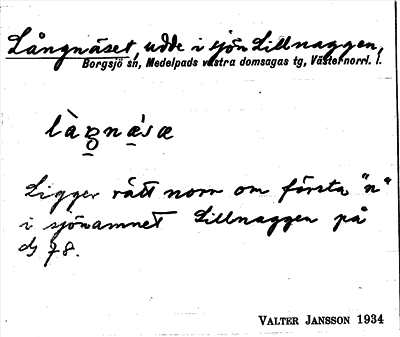 Långnäset, udde i sjön Lillnaggen,
Borgsjö sn, Medelpads västra domsagas tg, Västernorrl. l.
Ligger rätt norr om första "n"
i sjönamnet Lillnaggen på
78.
VALTER JANSSON 1934